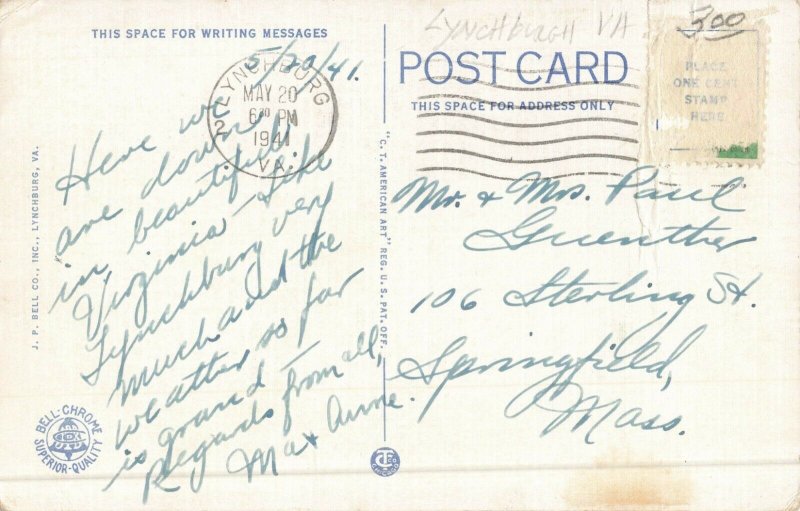 THIS SPACE FOR WRITING MESSAGES
5/20/41.
Here we
are down
in beautiful
Virginia - Like
Lynchburg very
much and the
weather so far
is grand -
Regards from all,
Max Anne.
LYNCHBURG
MAY 20
6 PM
1941
VA.
2
J. P. BELL CO., INC., LYNCHBURG, VA.
BELL-CHROME
SUPERIOR-QUALITY
"C. T. AMERICAN ART" REG. U. S. PAT. OFF.
CHICAGO
LYNCHBURGH VA
3.00
POST CARD
THIS SPACE FOR ADDRESS ONLY
PLACE
ONE CENT
STAMP
HERE
Mr. & Mrs. Paul
Guenther
106 Sterling St.
Springfield,
Mass.